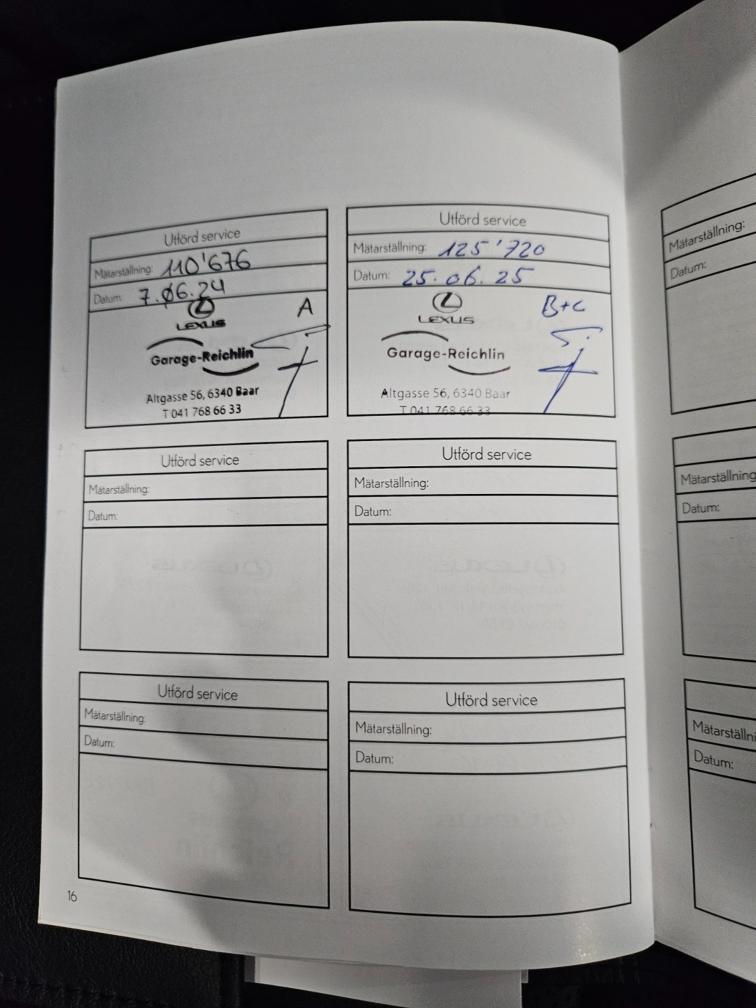 Utförd service
Mätarställning: 110'676
Datum: 7.06.24
A
LEXUS
Garage-Reichlin
Altgasse 56, 6340 Baar
T 041 768 66 33
Utförd service
Mätarställning: 125'720
Datum: 25.06.25
B+C
LEXUS
Garage-Reichlin
Altgasse 56, 6340 Baar
T 041 768 66 33
Utförd service
Mätarställning:
Datum:
Utförd service
Mätarställning:
Datum:
Utförd service
Mätarställning:
Datum:
Utförd service
Mätarställning:
Datum:
16
Mätarställning:
Datum:
Mätarställning
Datum:
Mätarställni
Datum: